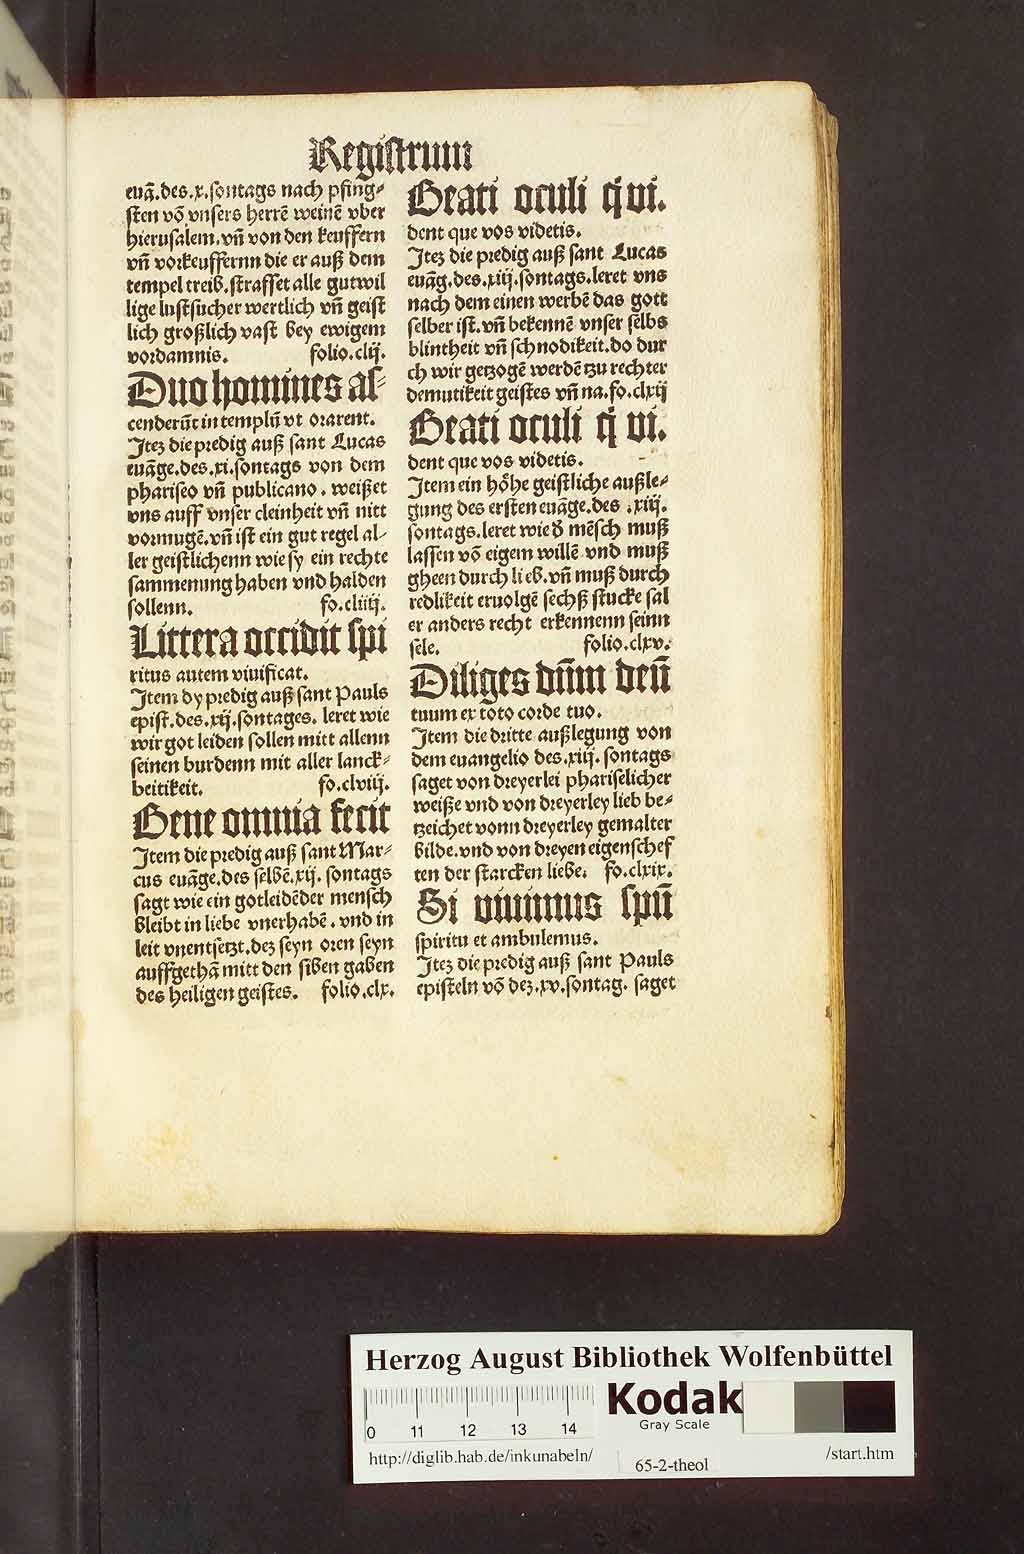 Registrum
euã. des. x. sontags nach pfing⸗
sten võ vnsers herrẽ weinẽ vber
hierusalem. vñ von den keuffern
vñ vorkeuffernn die er auß dem
tempel treib. straffet alle gutwil
lige lustsucher wertlich vñ geist
lich großlich vast bey ewigem
vordamnis. folio. clij.
Duo homines as⸗
cenderũt in templũ vt orarent.
Jtez die predig auß sant Lucas
euãge. des. xi. sontags von dem
phariseo vñ publicano. weißet
vns auff vnser cleinheit vñ nitt
vormugẽ. vñ ist ein gut regel al⸗
ler geistlichenn wie sy ein rechte
sammenung haben vnd halden
sollenn. fo. cliiij.
Littera occidit spi
ritus autem viuificat.
Jtem dy predig auß sant Pauls
epist. des. xij. sontages. leret wie
wir got leiden sollen mitt allenn
seinen burdenn mit aller lanck⸗
beitikeit. fo. clviij.
Bene omnia fecit
Jtem die predig auß sant Mar⸗
cus euãge. des selbẽ. xij. sontags
sagt wie ein gotleidẽder mensch
bleibt in liebe vnerhabẽ. vnd in
leit vnentsetzt. dez seyn oren seyn
auffgethã mitt den siben gaben
des heiligen geistes. folio. clx.
Beati oculi q̃ vi.
dent que vos videtis.
Jtez die predig auß sant Lucas
euãg. des. xiij. sontags. leret vns
nach dem einen werbẽ das gott
selber ist. vñ bekennẽ vnser selbs
blintheit vñ schnodikeit. do dur
ch wir getzogẽ werdẽ tzu rechter
demutikeit geistes vñ na. fo. clxij
Beati oculi q̃ vi.
dent que vos videtis.
Jtem ein hőhe geistliche außle⸗
gung des ersten euãge. des. xiij.
sontags. leret wie ð mẽsch muß
lassen võ eigem willẽ vnd muß
gheen durch lieb. vñ muß durch
redlikeit eruolgẽ sechß stucke sal
er anders recht erkennenn seinn
sele. folio. clxv.
Diliges dñm deũ
tuum ex toto corde tuo.
Jtem die dritte außlegung von
dem euangelio des. xiij. sontags
saget von dreyerlei phariselicher
weiße vnd von dreyerley lieb be⸗
tzeichet vonn dreyerley gemalter
bilde. vnd von dreyen eigenschef
ten der starcken liebe. fo. clxix.
Si viuimus spũ
spiritu et ambulemus.
Jtez die predig auß sant Pauls
episteln võ dez. xv. sontag. saget
Herzog August Bibliothek Wolfenbüttel
0 11 12 13 14
Kodak
Gray Scale
http://diglib.hab.de/inkunabeln/ 65-2-theol /start.htm